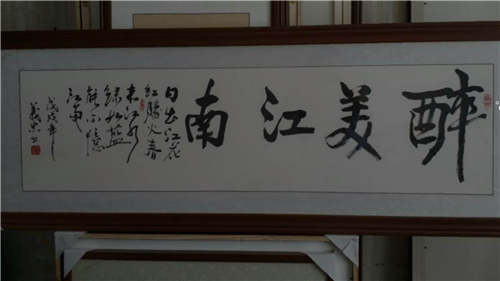 醉美江南
日出江花
红勝火春
来江水
绿如蓝
能不憶
江南
戊戌年